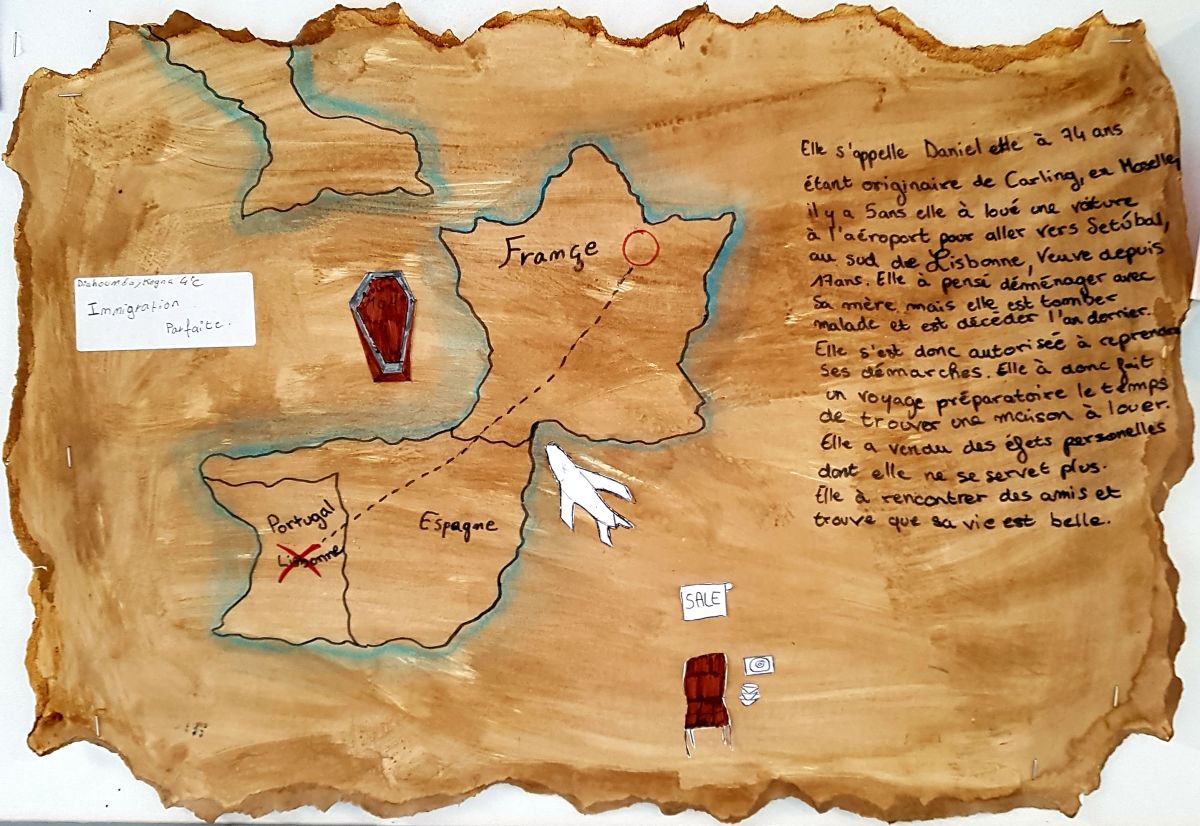 Elle s'appelle Daniel elle à 74 ans
étant originaire de Carling, en Moselle,
il y a 5ans elle à loué une voiture
à l'aéroport pour aller vers Setúbal,
au sud de Lisbonne, Veuve depuis
17ans. Elle à pensé déménager avec
Sa mère mais elle est tomber
malade et est décéder l'an dernier.
Elle s'est donc autorisée à reprendre
Ses démarches. Elle à donc fait
un voyage préparatoire le temps
de trouver une maison à louer.
Elle a vendu des éfets personelles
dont elle ne se servet plus.
Elle à rencontrer des amis et
trouve que sa vie est belle.
France
4°C
Immigration
Parfaite.
Portugal
Espagne
Lisbonne
SALE